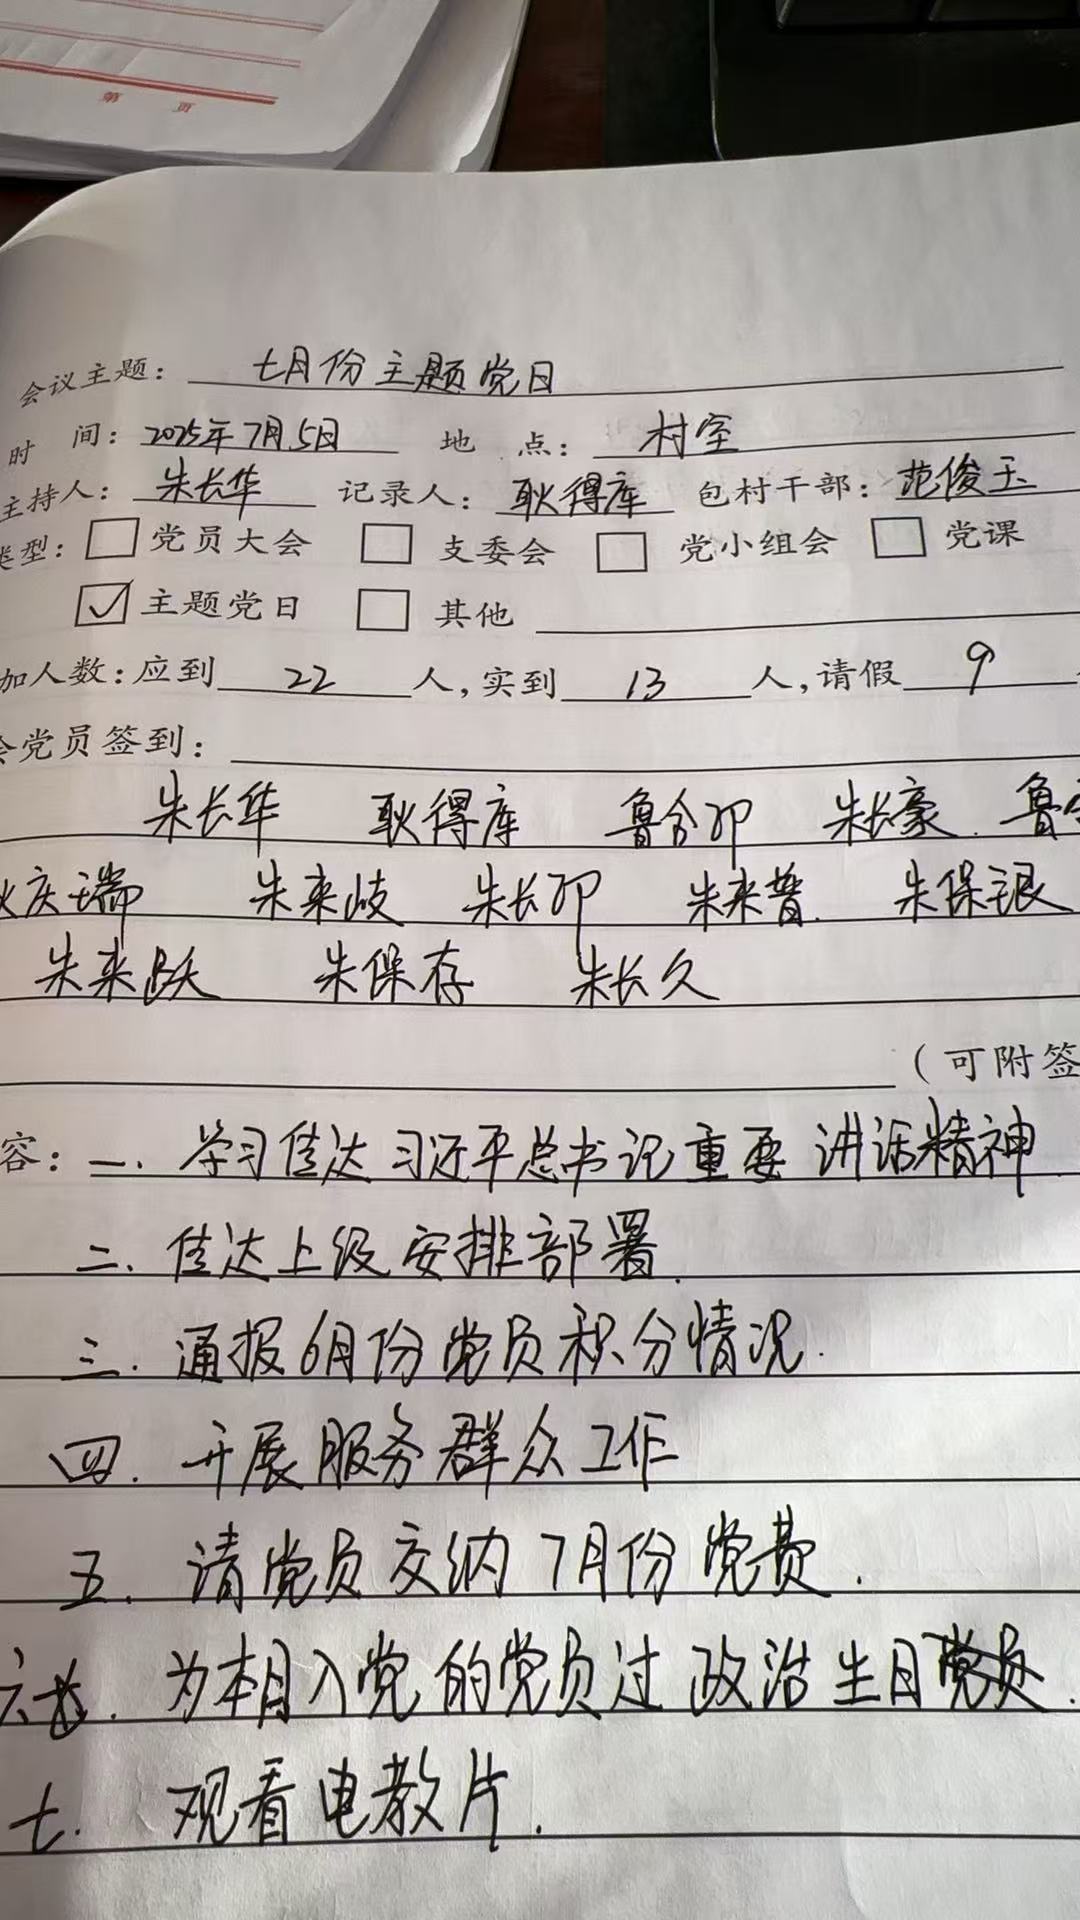 第 页
会议主题：七月份主题党日
时 间：2025年7月5日 地 点：村室
主持人：朱长华 记录人：耿得库 包村干部：范俊玉
类型：□党员大会 □支委会 □党小组会 □党课
☑主题党日 □其他
加人数：应到22人，实到13人，请假9
会党员签到：
朱长华 耿得库 鲁合印 朱长豪 鲁
庆瑞 朱来岐 朱长印 朱来普 朱保银
朱来跃 朱保存 朱长久
（可附签
容：一.学习传达习近平总书记重要讲话精神
二.传达上级安排部署.
三.通报6月份党员积分情况.
四.开展服务群众工作
五.请党员交纳7月份党费.
六.为本月入党的党员过政治生日.
七.观看电教片.